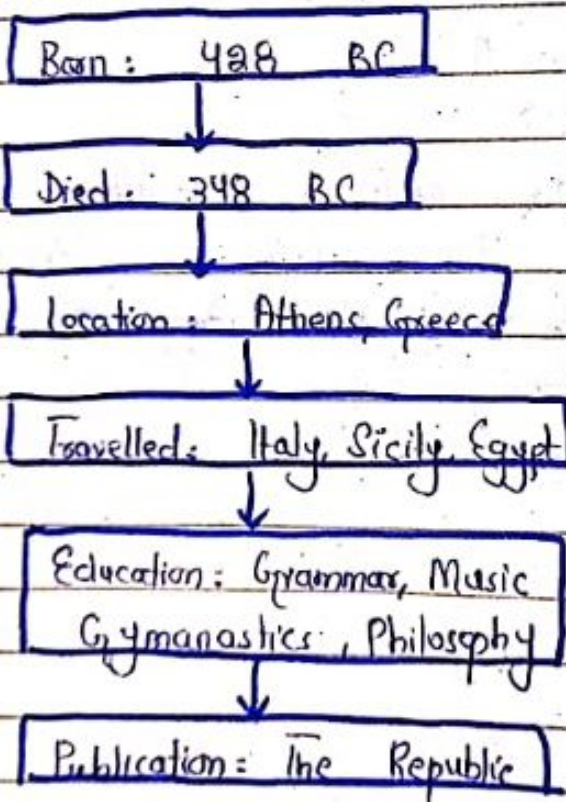 Born: 428 BC
Died: 348 BC
Location: Athens, Greece
Travelled: Italy, Sicily, Egypt
Education: Grammar, Music
Gymanastics, Philosophy
Publication: The Republic